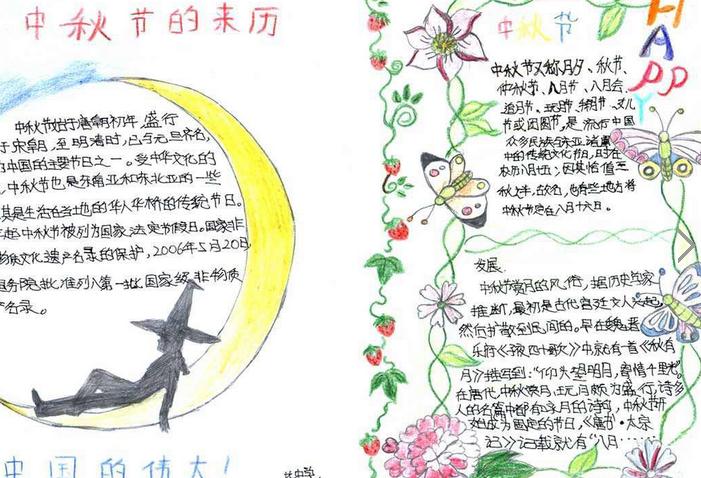 中秋节的来历
中秋节始于唐朝初年，盛行
于宋朝，至明清时，已与元旦齐名，
为中国的主要节日之一。受中华文化的
中秋节也是东南亚和东北亚的一些
其是生活在当地的华人华侨的传统节日。
年起中秋节被列为国家法定节假日。国家非
物质文化遗产名录的保护，2006年5月20日
国务院批准列入第一批国家级非物质
产名录。
中国的伟大！
中秋节
HAPPY
中秋节又称月夕、秋节、
仲秋节、八月节、八月会、
追月节、玩月节、拜月节、女儿
节或团圆节，是流行中国
众多民族与东亚诸国
中的传统文化节日，时在
农历八月十五；因其恰值三
秋之半，故名，也有些地方将
中秋节定在八月十六。
发展
中秋节赏月的风俗，据历史学家
推断，最初是古代宫廷文人兴起，
然后扩散到民间的。早在魏晋
乐府《子夜四十歌》中就有一首《秋有
月》描写到：“仰头望明月，寄情千里光。”
在唐代，中秋赏月、玩月颇为盛行，许多
人的名篇中都有咏月的诗句，中秋节开
始成为固定的节日，《唐书·太宗
记》记载就有“八月······